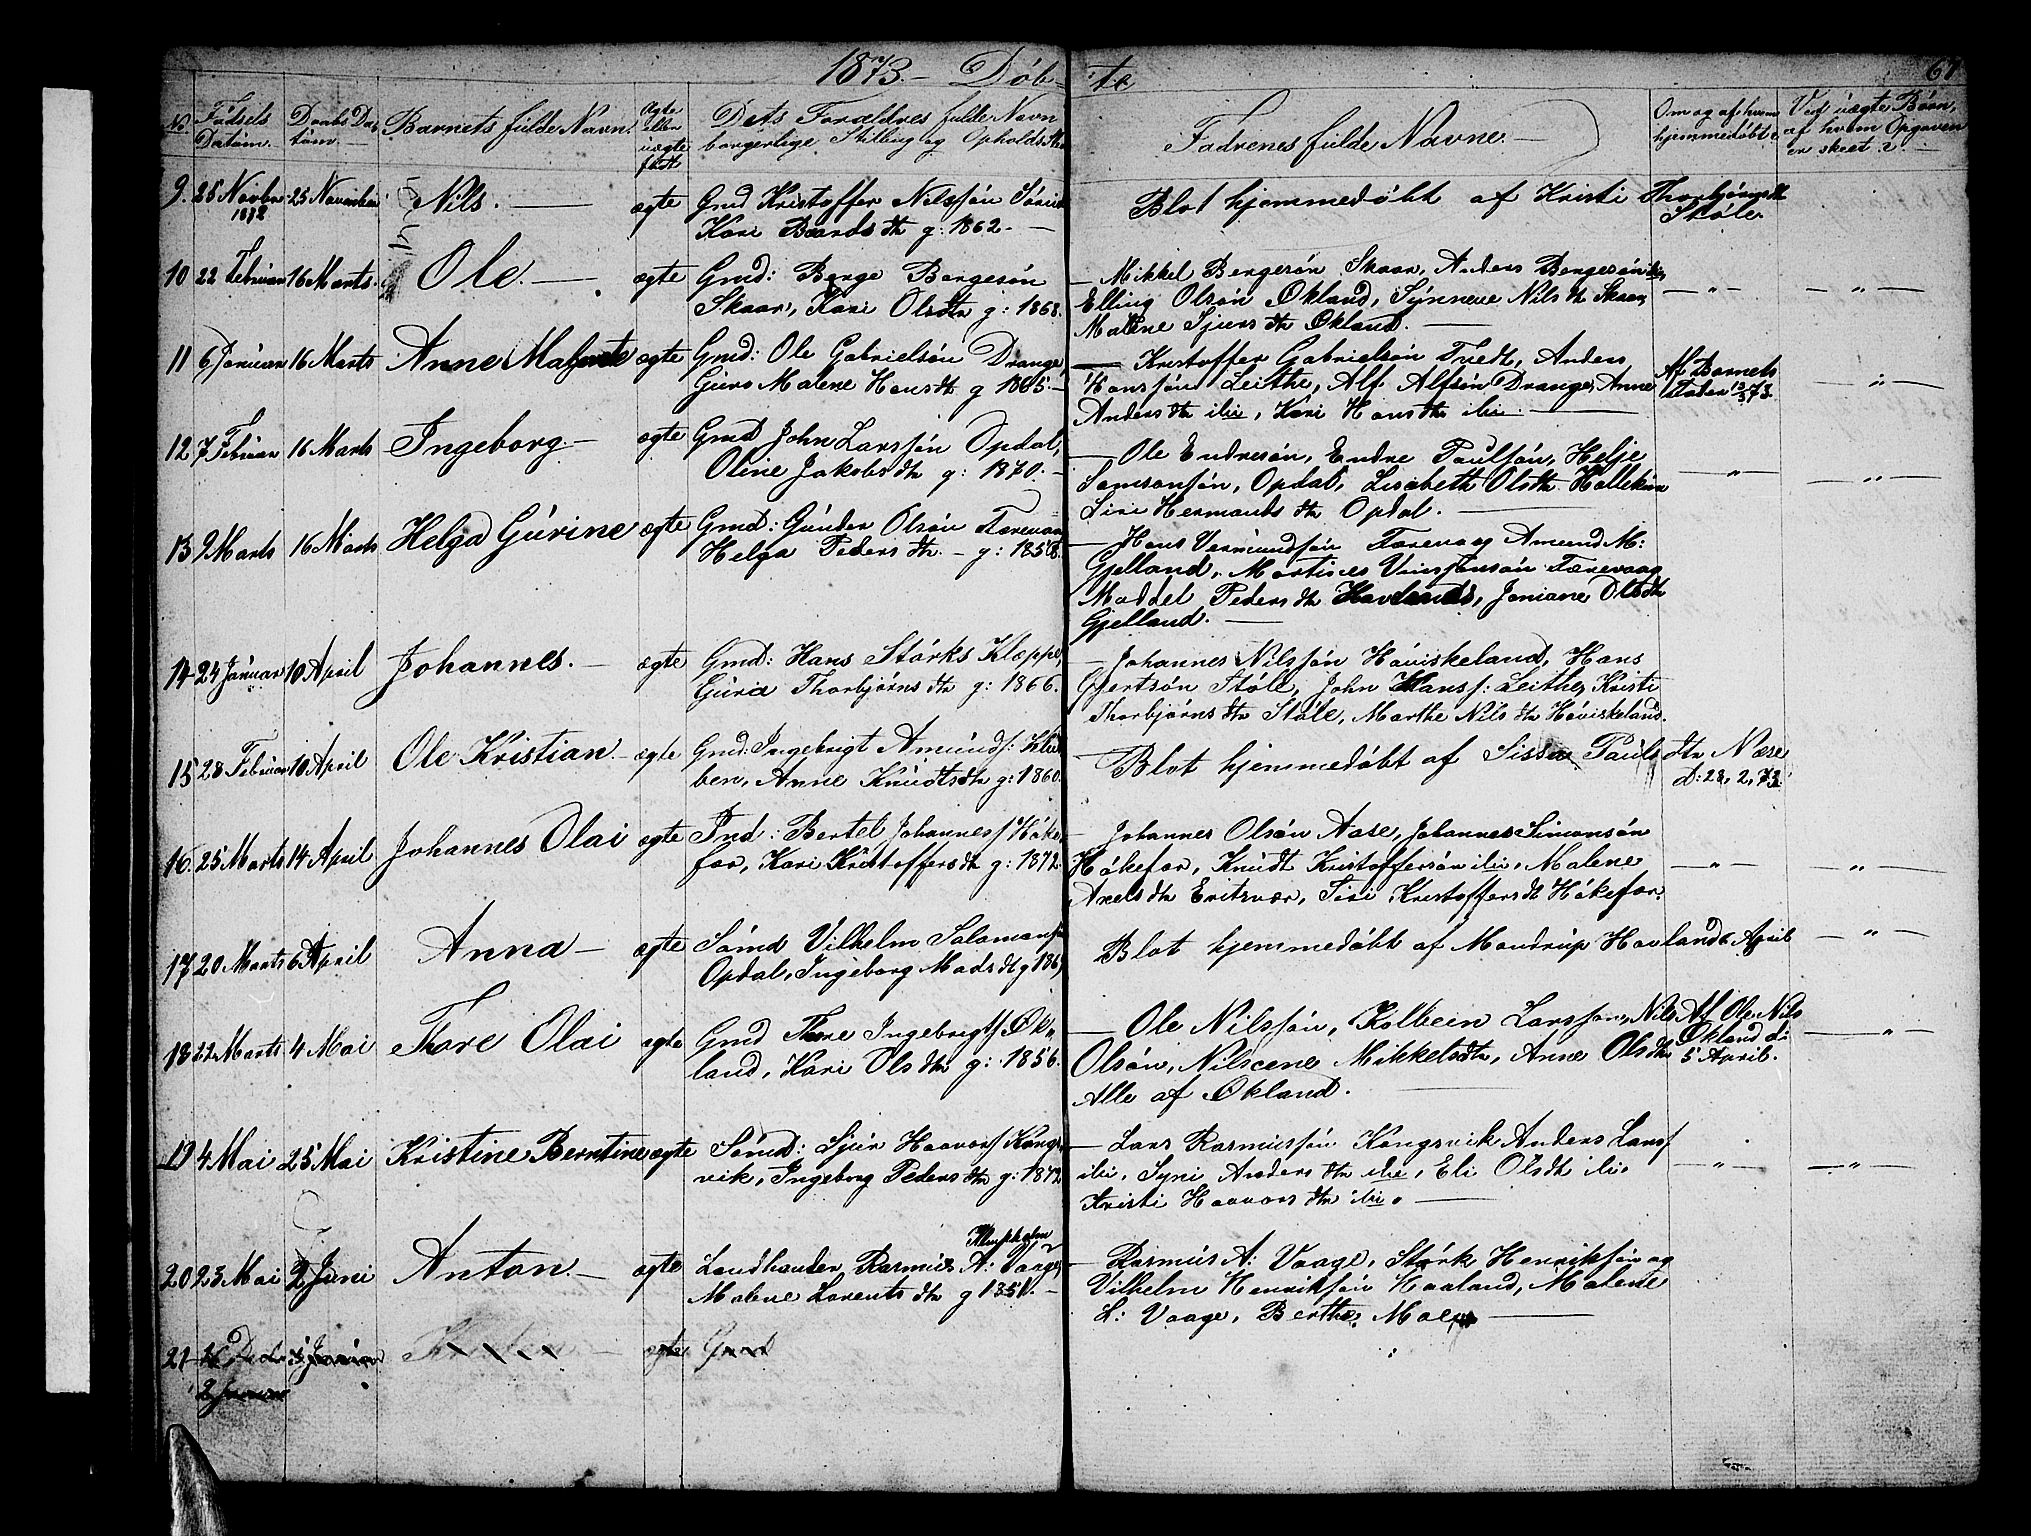 1873. — Döb-
te
67
No
Födsels Datum.
Daabs Datum.
Barnets fulde Navn.
Ægte eller uægte födt
Dets Forældres fulde Navn borgerlige Stilling og Opholds Sted
Fadrenes fulde Navne. —
Om og af hvem hjemmedöbt.
Ved uægte Börn, af hvem Opgaven er skeet?
9. 25 Novbr 1872 25 November Nils. — ægte Gmd Kristoffer Nilssön
Kari Baards dtr g: 1862. —
Blot hjemmedöbt af Kristi Thorbjörnsdt Stöle.
10 22 Februar 16 Marts. Ole. — ægte Gmd: Berge Bergesön
Skaar, Kari Olsdtr g: 1868.
— Mikkel Bergesön Skaar, Anders Bergesön ibi,
Elling Olsön Økland, Synneve Nils dtr Skaar,
Malene Sjurs dtr Økland. —
— " — — " —
11 6 Januar 16 Marts Anne Malene ægte Gmd: Ole Gabrielsön Drange,
Guro Malene Hansdtr g 1865. —
— Kristoffer Gabrielsön Tvedt, Anders
Hanssön Leithe, Alf Alfsön Drange, Anne
Anders dtr ibi, Kari Hansdtr ibi. —
Af Barnets Fader 13/3 73.
— " —
12 7 Februar 16 Marts Ingeborg. — ægte Gmd John Larssön Opdal,
Oline Jakobsdtr g: 1870. —
— Ole Endresön, Endre Paulsön, Helje
Samsonsön, Opdal, Lisabeth Olsdtr
Siri Hermands dtr Opdal. —
— " — — " —
13 2 Marts 16 Marts Helga Gurine ægte Gmd: Gunder Olsön Færevaag
Helga Peders dtr. — g: 1858.
— Hans Vermundsön Færevaag Amund M:
Gjelland, Martines Færevaag
Maddel Peders dtr Havlands, Joniane Olsdtr
Gjelland. —
14 24 Januar 10 April Johannes. — ægte Gmd: Hans Störks Kleppe,
Guria Thorbjörns dtr g: 1866.
— Johannes Nilssön Höviskeland, Hans
Gjertsön Stöle, John Hans f: Leithe, Kristi
Thorbjörns dtr Stöle, Marthe Nils dtr Höviskeland.
15 28 Februar 10 April Ole Kristian. — ægte Gmd: Ingebrigt Amunds: Klub
ben, Anne Knudtsdtr g: 1860.
Blot hjemmedöbt af Sissa Pauls dtr Næse
D: 28, 2, 73.
16. 25 Marts 14 April Johannes Olai ægte Ind: Bertel Johannes f Höke
for, Kari Kristoffers dt g: 1872.
— Johannes Olsön Aase, Johannes Simonsön
Hökefor, Knudt Kristoffersön ibi, Malene
Axels dtr Eritsvær, Siri Kristoffers dt Hökefor.
— " — — " —
17 20 Marts 6 April Anna — ægte Sömd Vilhelm Salamonsön
Opdal, Ingeborg Mads dt g 186
Blot hjemmedöbt af Mandrup Havland 6 April
— " —
18 22 Marts 4 Mai Thore Olai ægte Gmd Thore Ingebrigts f Øk-
land, Kari Ols dtr g: 1856.
— Ole Nilssön, Kolbein Larssön, Nils
Olsön, Nilscene Mikkelsdtr, Anne Olsdtr
Alle af Økland. —
Af Ole Nils Økland d: 5 April.
— " —
19 4 Mai 25 Mai Kristine Berntine ægte Sömd: Sjur Haavars f Kongs
vik, Ingeborg Peders dtr g: 1872
— Lars Rasmussön Kongsvik Anders Lars f
ibi, Syni Anders dtr ibi, Eli Olsdt ibi.
Kristi Haavars dtr ibi. —
— " — — " —
20 23 Mai 2 Juni Anton. — ægte Landhandler Rasmus A: Vaage,
Malene Lorents dtr g 1851. —
— Rasmus A: Vaage, Störk Henriksön og
Vilhelm Henriksön Haaland, Malene
L: Vaage, Berthe Moe —
21 Januar ægte Gmd